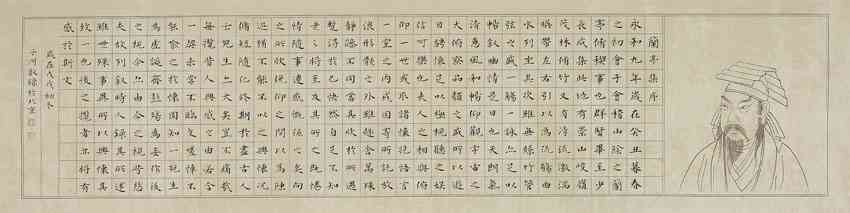 蘭亭集序
永和九年歲在癸丑暮春
之初會于會稽山陰之蘭
亭脩稧事也群賢畢至少
長咸集此地有崇山峻嶺
茂林脩竹又有清流激湍
暎帶左右引以為流觴曲
水列坐其次雖無絲竹管
弦之盛一觴一詠亦足以
暢敘幽情是日也天朗氣
清惠風和暢仰觀宇宙之
大俯察品類之盛所以遊
目騁懷足以極視聽之娛
信可樂也夫人之相與俯
仰一世或取諸懷抱悟言
一室之內或因寄所託放
浪形骸之外雖趣舍萬殊
靜躁不同當其欣於所遇
暫得於己怏然自足不知
老之將至及其所之既惓
情隨事遷感慨係之矣向
之所欣俛仰之間以為陳
迹猶不能不以之興懷況
脩短隨化終期於盡古人
云死生亦大矣豈不痛哉
每攬昔人興感之由若合
一契未嘗不臨文嗟悼不
能喻之於懷固知一死生
為虛誕齊彭殤為妄作後
之視今亦由今之視昔悲
夫故列敘時人錄其所述
雖世殊事異所以興懷其
致一也後之攬者亦將有
感於斯文
歲在戊戌初冬
子河敬錄於北京